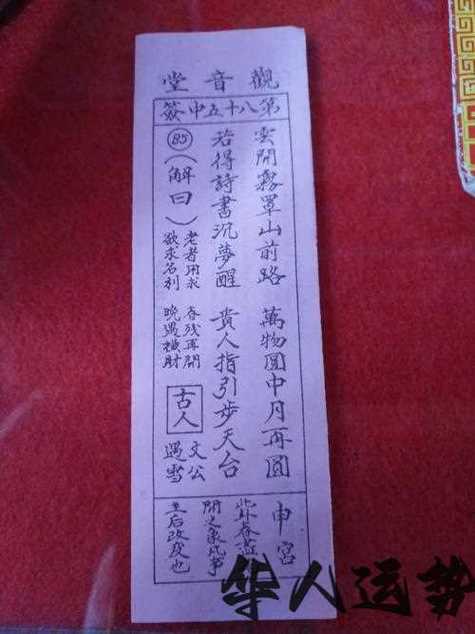 觀音堂
第八十五中簽
雲開霧罩山前路 萬物圓中月再圓
若得詩書沉夢醒 貴人指引步天台
85(解曰)
老者用求 春残再開
欲求名利 晚遇橫財
古人
文公
遇雪
申宮
此卦春盡
開之象凡事
后改变也
华人运势